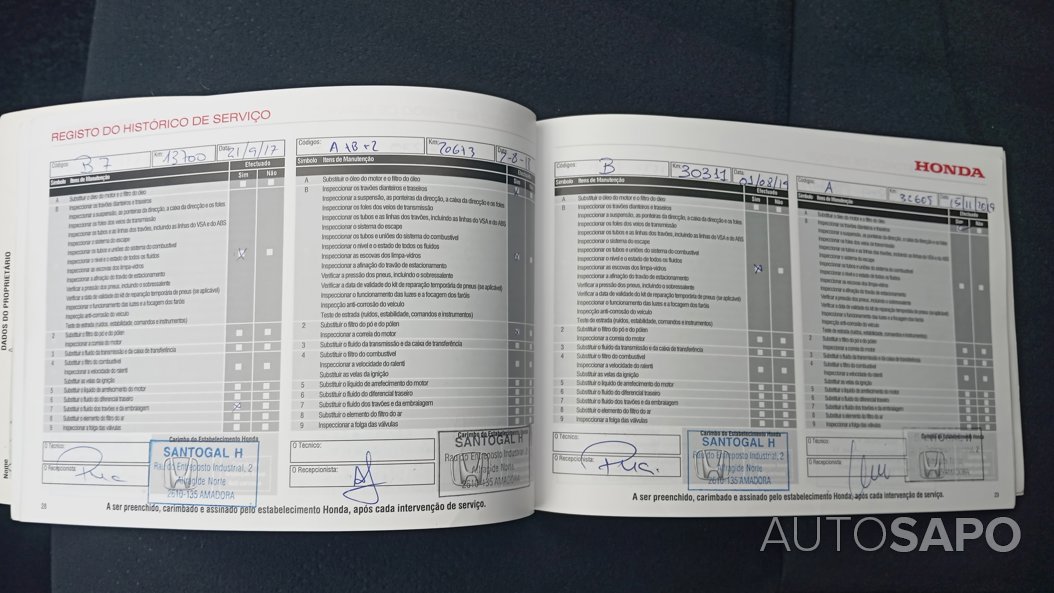 REGISTO DO HISTÓRICO DE SERVIÇO
HONDA
DADOS DO PROPRIETÁRIO
Nome
Códigos: B 7 Km: 13700 Data: 21/9/17
Símbolo Itens de Manutenção Efectuado
Sim Não
A Substituir o óleo do motor e o filtro do óleo
B Inspeccionar os travões dianteiros e traseiros
Inspeccionar a suspensão, as ponteiras da direcção, a caixa da direcção e os foles
Inspeccionar os foles dos veios de transmissão
Inspeccionar os tubos e as linhas dos travões, incluindo as linhas do VSA e do ABS
Inspeccionar o sistema do escape
Inspeccionar os tubos e uniões do sistema do combustível
Inspeccionar o nível e o estado de todos os fluidos
Inspeccionar as escovas dos limpa-vidros
Inspeccionar a afinação do travão de estacionamento
Verificar a pressão dos pneus, incluindo o sobressalente
Verificar a data de validade do kit de reparação temporária de pneus (se aplicável)
Inspeccionar o funcionamento das luzes e a focagem dos faróis
Inspecção anti-corrosão do veículo
Teste de estrada (ruídos, estabilidade, comandos e instrumentos)
2 Substituir o filtro do pó e do pólen
Inspeccionar a correia do motor
3 Substituir o fluido da transmissão e da caixa de transferência
4 Substituir o filtro do combustível
Inspeccionar a velocidade do ralenti
Substituir as velas da ignição
5 Substituir o líquido de arrefecimento do motor
6 Substituir o fluido do diferencial traseiro
7 Substituir o fluido dos travões e da embraiagem
8 Substituir o elemento do filtro do ar
9 Inspeccionar a folga das válvulas
O Técnico:
O Recepcionista:
Carimbo do Estabelecimento Honda
SANTOGAL H
Rua do Entreposto Industrial, 2
Alfragide Norte
2610-135 AMADORA
Códigos: A+B+2 Km: 20673 Data:
Símbolo Itens de Manutenção
A Substituir o óleo do motor e o filtro do óleo
B Inspeccionar os travões dianteiros e traseiros
Inspeccionar a suspensão, as ponteiras da direcção, a caixa da direcção e os foles
Inspeccionar os foles dos veios de transmissão
Inspeccionar os tubos e as linhas dos travões, incluindo as linhas do VSA e do ABS
Inspeccionar o sistema do escape
Inspeccionar os tubos e uniões do combustível
Inspeccionar o nível e o estado de todos os fluidos
Inspeccionar as escovas dos limpa-vidros
Inspeccionar a afinação do travão de estacionamento
Verificar a pressão dos pneus, incluindo o sobressalente
Verificar a data de validade do kit de reparação temporária de pneus (se aplicável)
Inspeccionar o funcionamento das luzes e a focagem dos faróis
Inspecção anti-corrosão do veículo
Teste de estrada (ruídos, estabilidade, comandos e instrumentos)
2 Substituir o filtro do pó e do pólen
Inspeccionar a correia do motor
3 Substituir o fluido da transmissão e da caixa de transferência
4 Substituir o filtro do combustível
Inspeccionar a velocidade do ralenti
Substituir as velas da ignição
5 Substituir o líquido de arrefecimento do motor
6 Substituir o fluido do diferencial traseiro
7 Substituir o fluido dos travões e da embraiagem
8 Substituir o elemento do filtro do ar
9 Inspeccionar a folga das válvulas
O Técnico:
O Recepcionista:
Carimbo do Estabelecimento Honda
SANTOGAL H
Rua do Entreposto Industrial, 2
Alfragide Norte
2610-135 AMADORA
28 A ser preenchido, carimbado e assinado pelo estabelecimento Honda, após cada intervenção de serviço.
Códigos: B Km: 30311 Data: 01/08/19
Símbolo Itens de Manutenção Efectuado
Sim Não
A Substituir o óleo do motor e o filtro do óleo
B Inspeccionar os travões dianteiros e traseiros
Inspeccionar a suspensão, as ponteiras da direcção, a caixa da direcção e os foles
Inspeccionar os foles dos veios de transmissão
Inspeccionar os tubos e as linhas dos travões, incluindo as linhas do VSA e do ABS
Inspeccionar o sistema do escape
Inspeccionar os tubos e uniões do combustível
Inspeccionar o nível e o estado de todos os fluidos
Inspeccionar as escovas dos limpa-vidros
Inspeccionar a afinação do travão de estacionamento
Verificar a pressão dos pneus, incluindo o sobressalente
Verificar a data de validade do kit de reparação temporária de pneus (se aplicável)
Inspeccionar o funcionamento das luzes e a focagem dos faróis
Inspecção anti-corrosão do veículo
Teste de estrada (ruídos, estabilidade, comandos e instrumentos)
2 Substituir o filtro do pó e do pólen
Inspeccionar a correia do motor
3 Substituir o fluido da transmissão e da caixa de transferência
4 Substituir o filtro do combustível
Inspeccionar a velocidade do ralenti
Substituir as velas da ignição
5 Substituir o líquido de arrefecimento do motor
6 Substituir o fluido do diferencial traseiro
7 Substituir o fluido dos travões e da embraiagem
8 Substituir o elemento do filtro do ar
9 Inspeccionar a folga das válvulas
O Técnico:
O Recepcionista:
Carimbo do Estabelecimento Honda
SANTOGAL H
Rua do Entreposto Industrial, 2
Alfragide Norte
2610-135 AMADORA
Códigos: A Km: 32605 Data: 15/11/2019
Símbolo Itens de Manutenção Efectuado
Sim Não
A Substituir o óleo do motor e o filtro do óleo
B Inspeccionar os travões dianteiros e traseiros
Inspeccionar a suspensão, as ponteiras da direcção, a caixa da direcção e os foles
Inspeccionar os foles dos veios de transmissão
Inspeccionar os tubos e as linhas dos travões, incluindo as linhas do VSA e do ABS
Inspeccionar o sistema do escape
Inspeccionar os tubos e uniões do combustível
Inspeccionar o nível e o estado de todos os fluidos
Inspeccionar as escovas dos limpa-vidros
Inspeccionar a afinação do travão de estacionamento
Verificar a pressão dos pneus, incluindo o sobressalente
Verificar a data de validade do kit de reparação temporária de pneus (se aplicável)
Inspeccionar o funcionamento das luzes e a focagem dos faróis
Inspecção anti-corrosão do veículo
Teste de estrada (ruídos, estabilidade, comandos e instrumentos)
2 Substituir o filtro do pó e do pólen
Inspeccionar a correia do motor
3 Substituir o fluido da transmissão e da caixa de transferência
4 Substituir o filtro do combustível
Inspeccionar a velocidade do ralenti
Substituir as velas da ignição
5 Substituir o líquido de arrefecimento do motor
6 Substituir o fluido do diferencial traseiro
7 Substituir o fluido dos travões e da embraiagem
8 Substituir o elemento do filtro do ar
9 Inspeccionar a folga das válvulas
O Técnico:
O Recepcionista:
Carimbo do Estabelecimento Honda
A ser preenchido, carimbado e assinado pelo estabelecimento Honda, após cada intervenção de serviço. 29
AUTOSAPO